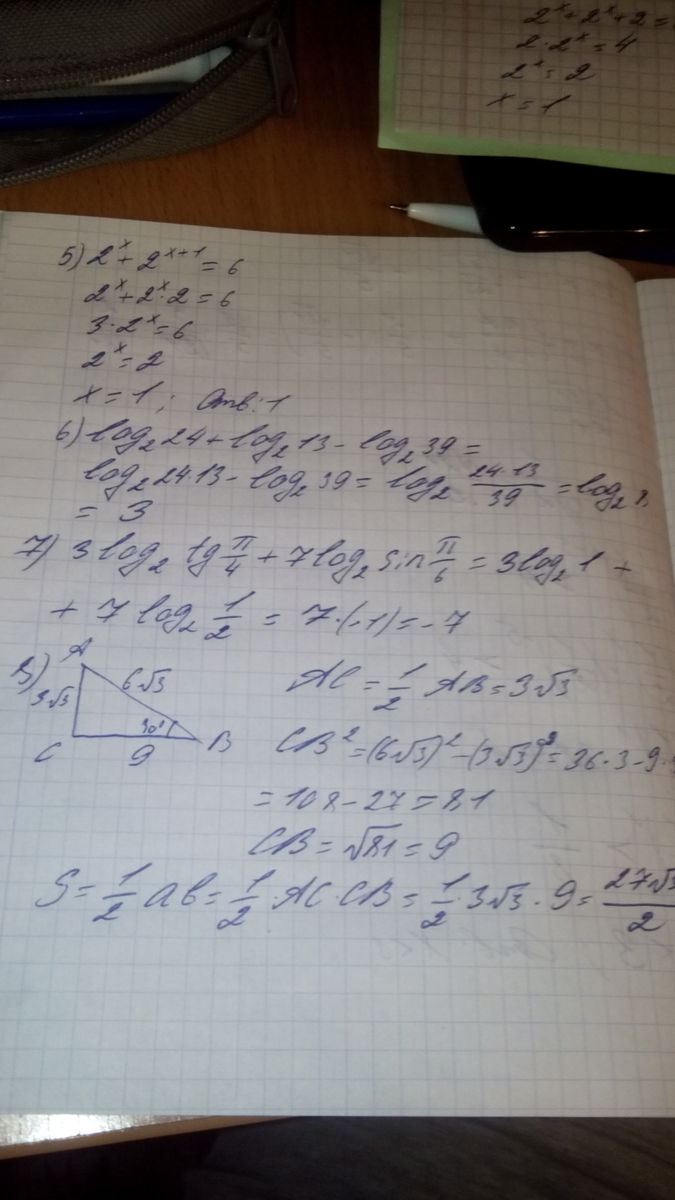 2ˣ+2ˣ+2=
2·2ˣ=4
2ˣ=2
x=1
5) 2ˣ+2ˣ⁺¹=6
2ˣ+2ˣ·2=6
3·2ˣ=6
2ˣ=2
x=1; Отв:1
6) log₂24+log₂13-log₂39=
log₂24·13-log₂39=log₂ 24·13/39 =log₂8
= 3
7) 3log₂ tg π/4 + 7log₂ sin π/6 = 3log₂1 +
+ 7 log₂ 1/2 = 7·(-1)=-7
8) A
3√3 6√3 AC = 1/2 AB=3√3
30°
C 9 B CB²=(6√3)²-(3√3)²=36·3-9·
=108-27=81
CB=√81=9
S=1/2 ab=1/2·AC·CB=1/2·3√3·9= 27√3/2